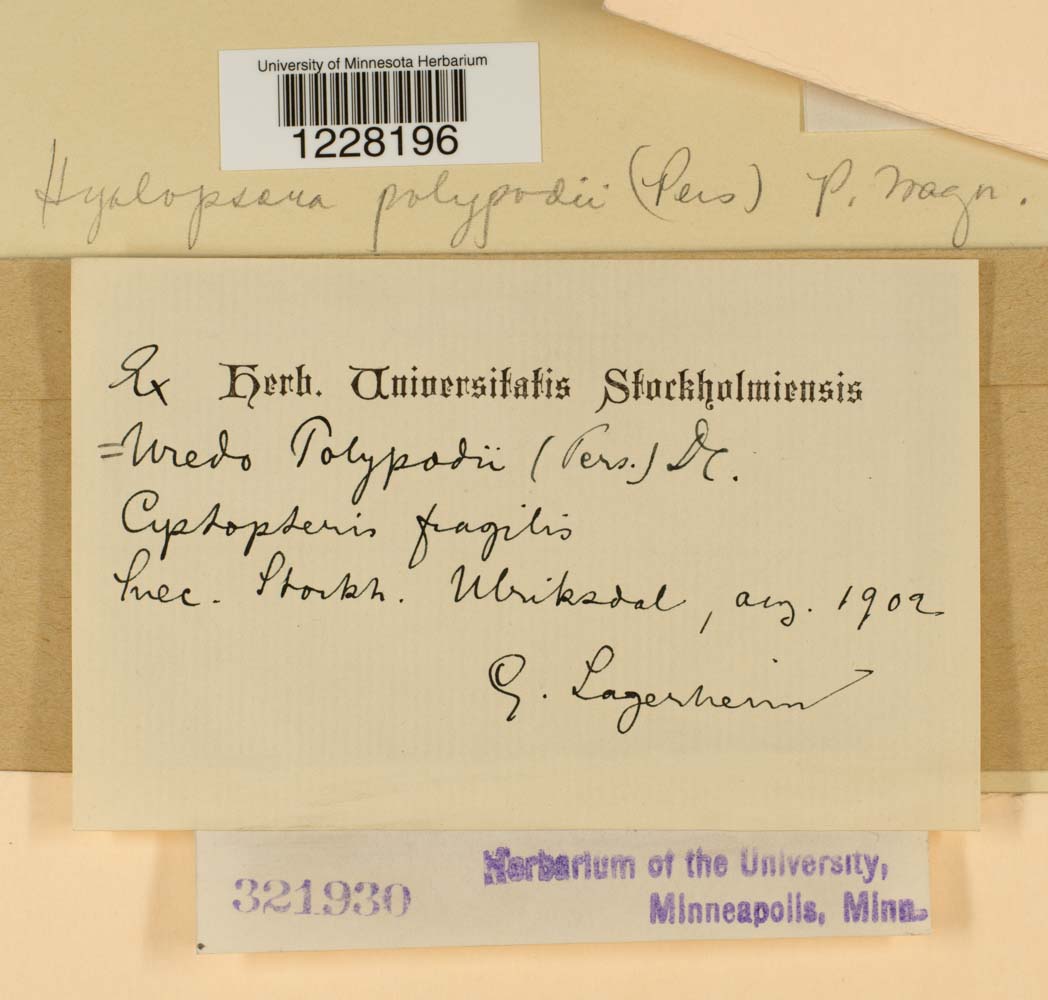 University of Minnesota Herbarium
1228196
Hyalopsora polypodii (Pers) P. Magn.
Ex Herb. Universitatis Stockholmiensis
=Uredo Polypodii (Pers.) DC.
Cystopteris fragilis
Suec. Stockh. Ulriksdal, aug. 1902
G. Lagerheim
321930
Herbarium of the University,
Minneapolis, Minn.